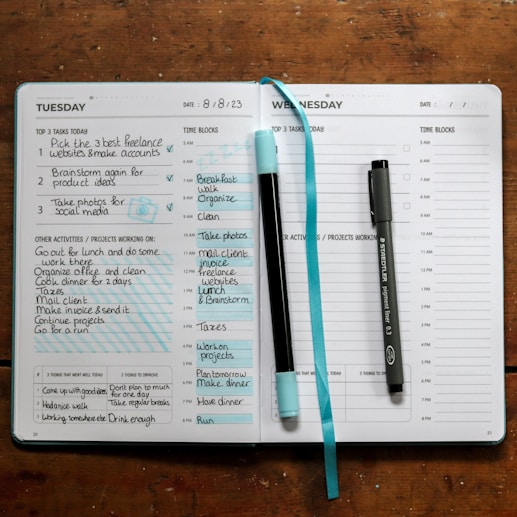 TUESDAY
DATE : 8/8/23
TOP 3 TASKS TODAY
1 Pick the 3 best freelance
websites & make accounts
2 Brainstorm again for
product ideas
3 Take photos for
social media
OTHER ACTIVITIES / PROJECTS WORKING ON:
Go out for lunch and do some
work there
Organize office and clean
Cook dinner for 2 days
Taxes
Mail client
Make invoice & send it
Continue projects
Go for a run
3 THINGS THAT WENT WELL TODAY
3 THINGS TO IMPROVE
Came up with good ideas
Dont plan to much
for one day
Had a nice walk
Take regular breaks
Working somewhere else
Drink enough
TIME BLOCKS
5 AM
zzzzz
7 AM Breakfast
Walk
Organize
9 AM Clean
10 AM Take photos
11 AM Mail client
invoice
12 PM Freelance
websites
Lunch
& Brainstorm
3 PM Taxes
Work on
projects
Plan tomorrow
6 PM Make dinner
7 PM Have dinner
8 PM Run
20
WEDNESDAY
DATE :
TOP 3 TASKS
1
ER ACTIVITIES / PROJECTS WORKING
THINGS TO IMPROVE
TIME BLOCKS
5 AM
6 AM
7 AM
8 AM
9 AM
10 AM
11 AM
12 PM
1 PM
2 PM
3 PM
4 PM
5 PM
6 PM
7 PM
8 PM
21
STAEDTLER
pigment liner 0.3